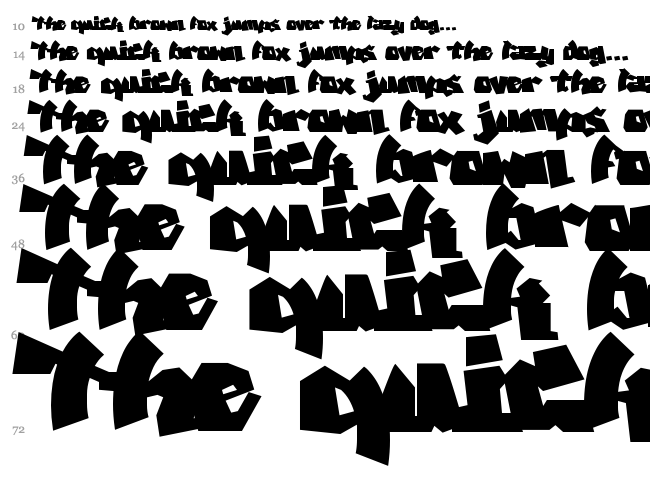 10 the quick brown fox jumps over the lazy dog...
14 the quick brown fox jumps over the lazy dog...
18 the quick brown fox jumps over the
24 the quick brown fox jumps
36 the quick brown
48 the quick
the quick
72 the